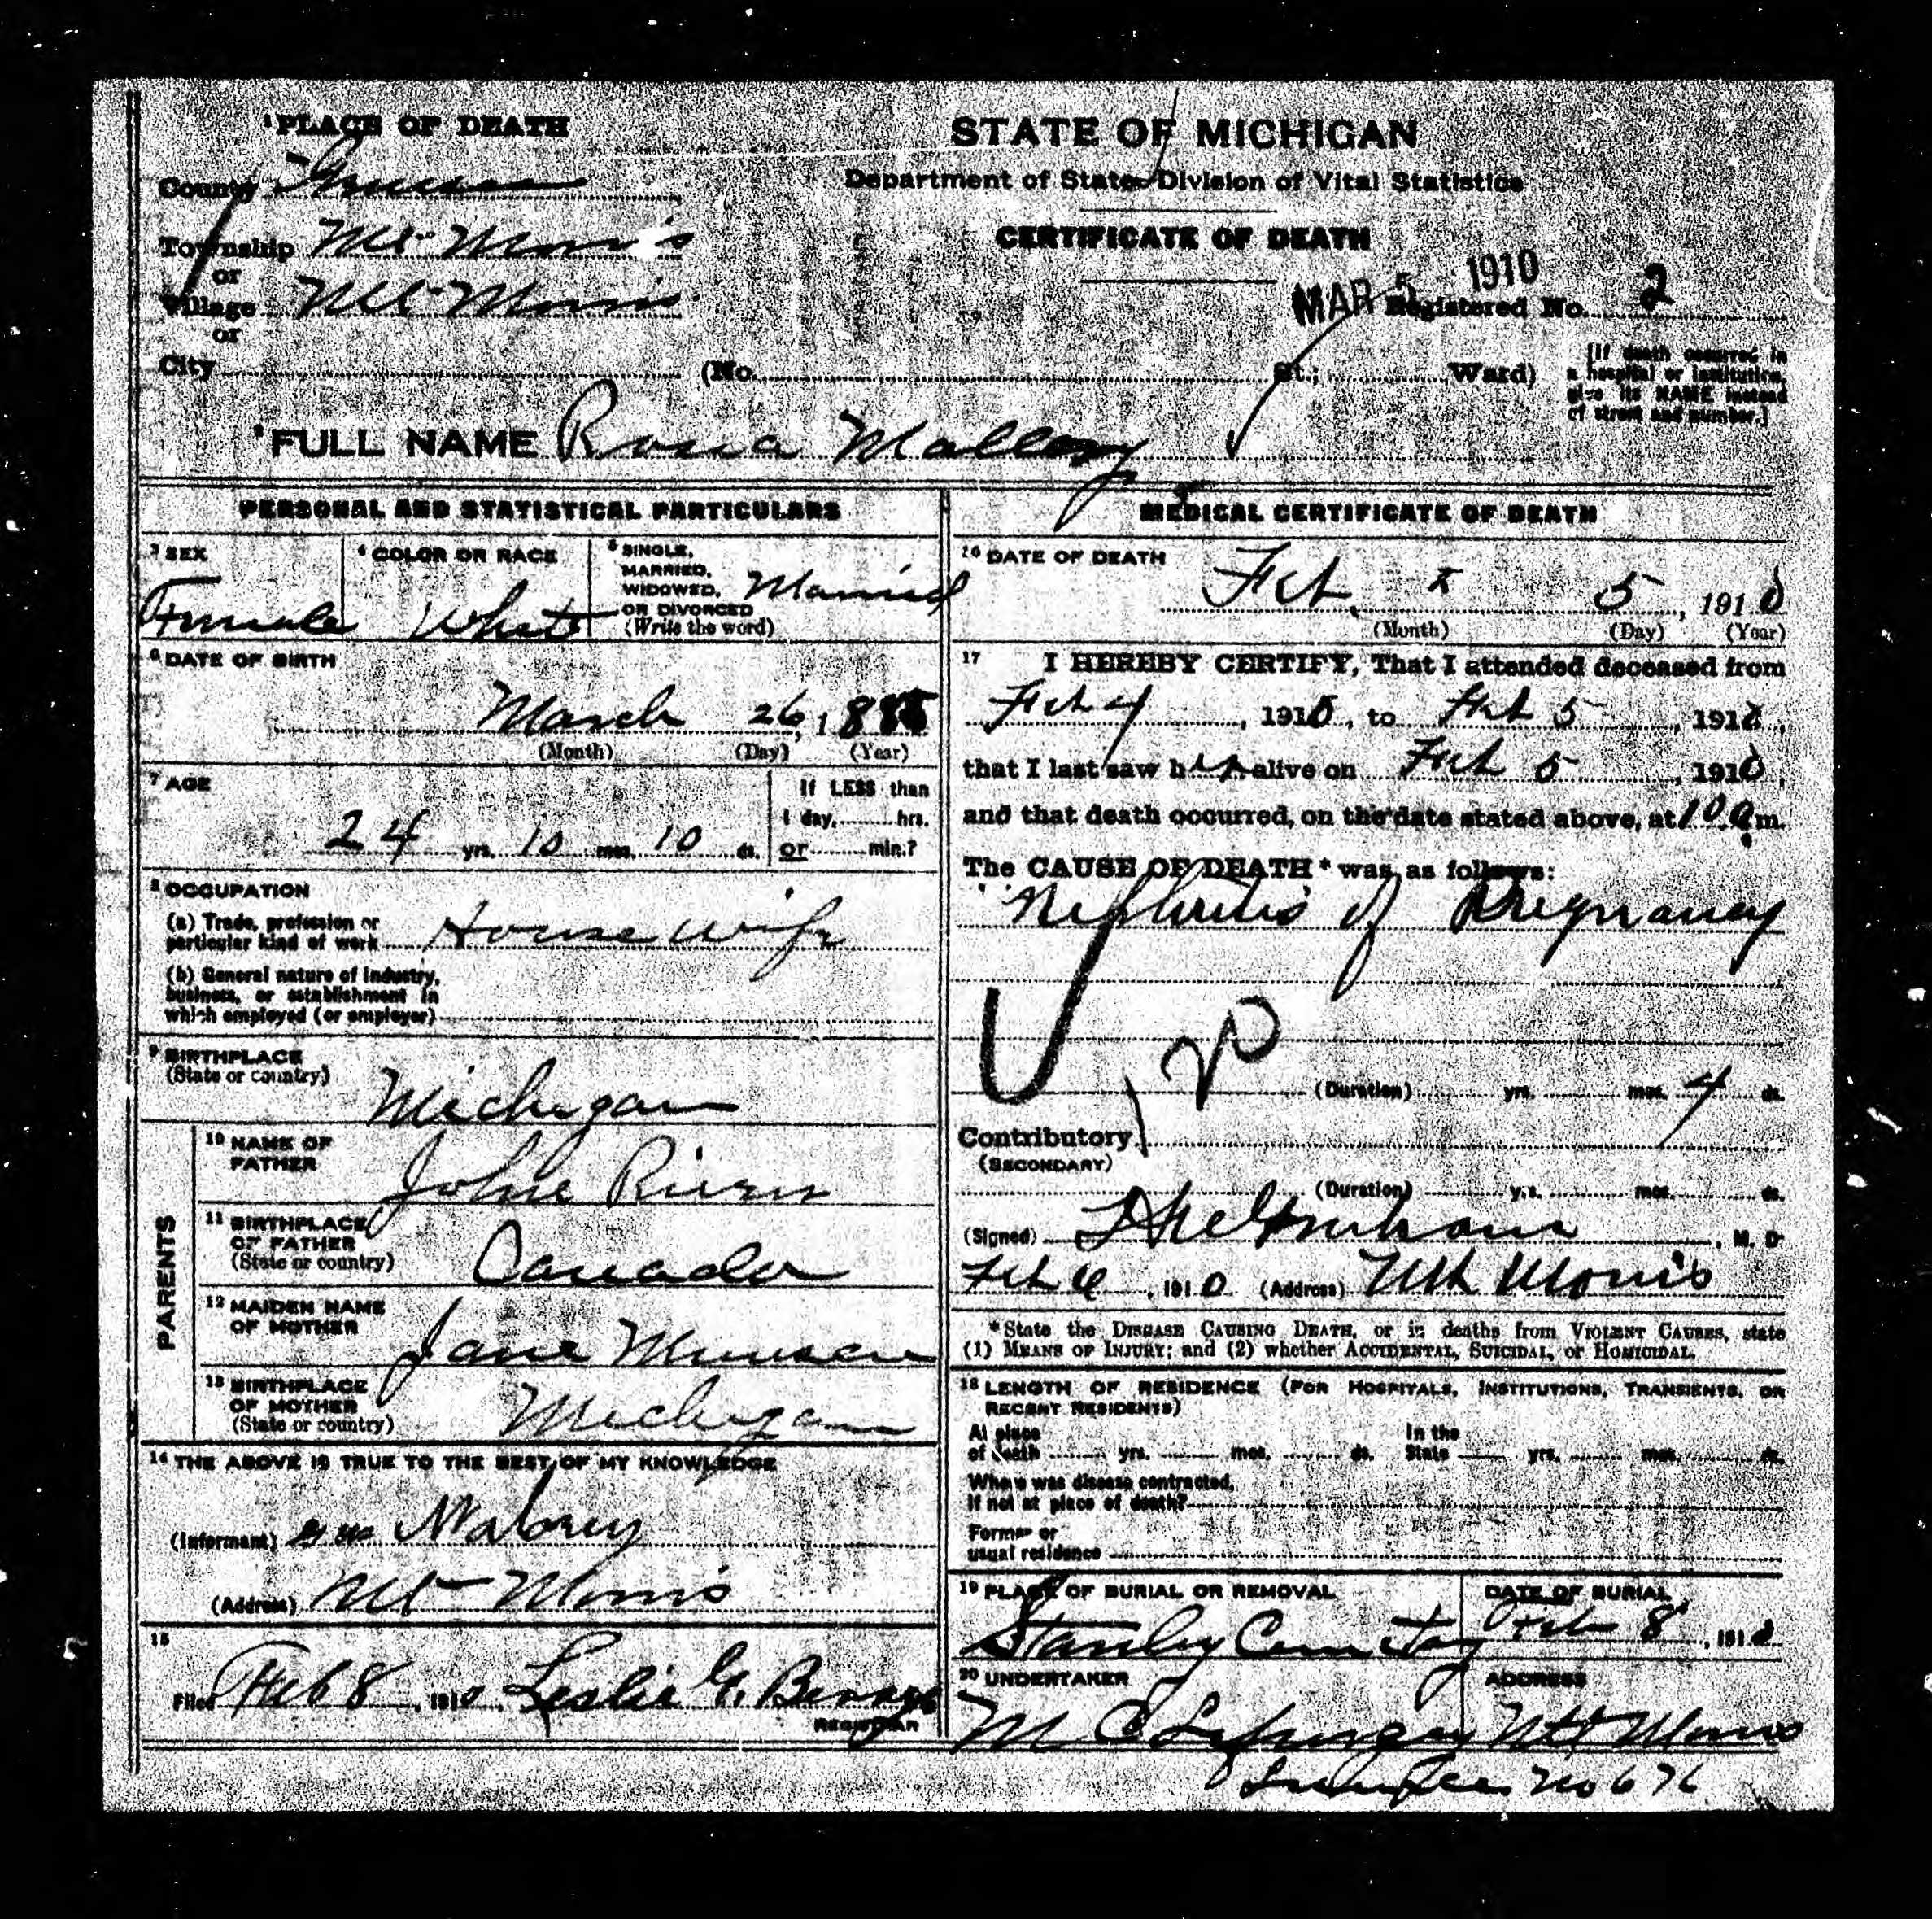 ¹PLACE OF DEATH
County Genesee
Township Mt Morris
or
Village Mt Morris
or
City (No. St.; Ward)
STATE OF MICHIGAN
Department of State—Division of Vital Statistics
CERTIFICATE OF DEATH
MAR 5 1910
Registered No. 2
[If death occurred in
a hospital or institution,
give its NAME instead
of street and number.]
²FULL NAME Rosa Mallory
PERSONAL AND STATISTICAL PARTICULARS
³ SEX
Female
⁴ COLOR OR RACE
White
⁵ SINGLE,
MARRIED,
WIDOWED,
OR DIVORCED
(Write the word)
Married
⁶ DATE OF BIRTH
March 26, 1885
(Month) (Day) (Year)
⁷ AGE
24 yrs. 10 mos. 10 ds.
If LESS than
1 day, hrs.
or min.?
⁸ OCCUPATION
(a) Trade, profession or
particular kind of work House wife
(b) General nature of industry,
business, or establishment in
which employed (or employer)
⁹ BIRTHPLACE
(State or country)
Michigan
PARENTS
¹⁰ NAME OF
FATHER
John
¹¹ BIRTHPLACE
OF FATHER
(State or country)
Canada
¹² MAIDEN NAME
OF MOTHER
Jane
¹³ BIRTHPLACE
OF MOTHER
(State or country)
Michigan
¹⁴ THE ABOVE IS TRUE TO THE BEST OF MY KNOWLEDGE
(Informant)
(Address) Mt Morris
¹⁵
Filed Feb 8, 1910 Leslie G.
REGISTRAR
MEDICAL CERTIFICATE OF DEATH
¹⁶ DATE OF DEATH
Feb 5, 1910
(Month) (Day) (Year)
¹⁷ I HEREBY CERTIFY, That I attended deceased from
Feb 4, 1910, to Feb 5, 1910,
that I last saw her alive on Feb 5, 1910,
and that death occurred, on the date stated above, at 10 a m.
The CAUSE OF DEATH* was as follows:
Nephritis of Pregnancy
(Duration) yrs. mos. 4 ds.
Contributory
(SECONDARY)
(Duration) yrs. mos. ds.
(Signed) , M. D.
Feb 6, 1910 (Address) Mt Morris
*State the DISEASE CAUSING DEATH, or in deaths from VIOLENT CAUSES, state
(1) MEANS OF INJURY; and (2) whether ACCIDENTAL, SUICIDAL, or HOMICIDAL.
¹⁸ LENGTH OF RESIDENCE (FOR HOSPITALS, INSTITUTIONS, TRANSIENTS, OR
RECENT RESIDENTS)
At place
of death yrs. mos. ds.
In the
State yrs. mos. ds.
Where was disease contracted,
if not at place of death?
Former or
usual residence
¹⁹ PLACE OF BURIAL OR REMOVAL
Stanley Cemetery
DATE OF BURIAL
Feb 8, 1910
²⁰ UNDERTAKER
M C
ADDRESS
Mt Morris
No 676